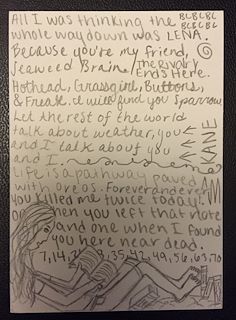 All I was thinking the
BLBLBL
BLBLBL
whole way down was LENA.
Because you're my friend,
Seaweed Brain/The Rivalry
Ends Here.
Hothead, Grassgirl, Buttons,
& Freak. I will find you Sparrow
Let the rest of the world
talk about weather, you
and I talk about you
and I.
KANE
Life is a pathway paved
with oreos. Forever and ever
you killed me twice today!
when you left that note
and one when I found
you here near dead.
7, 14, 35, 42, 49, 56, 63, 70